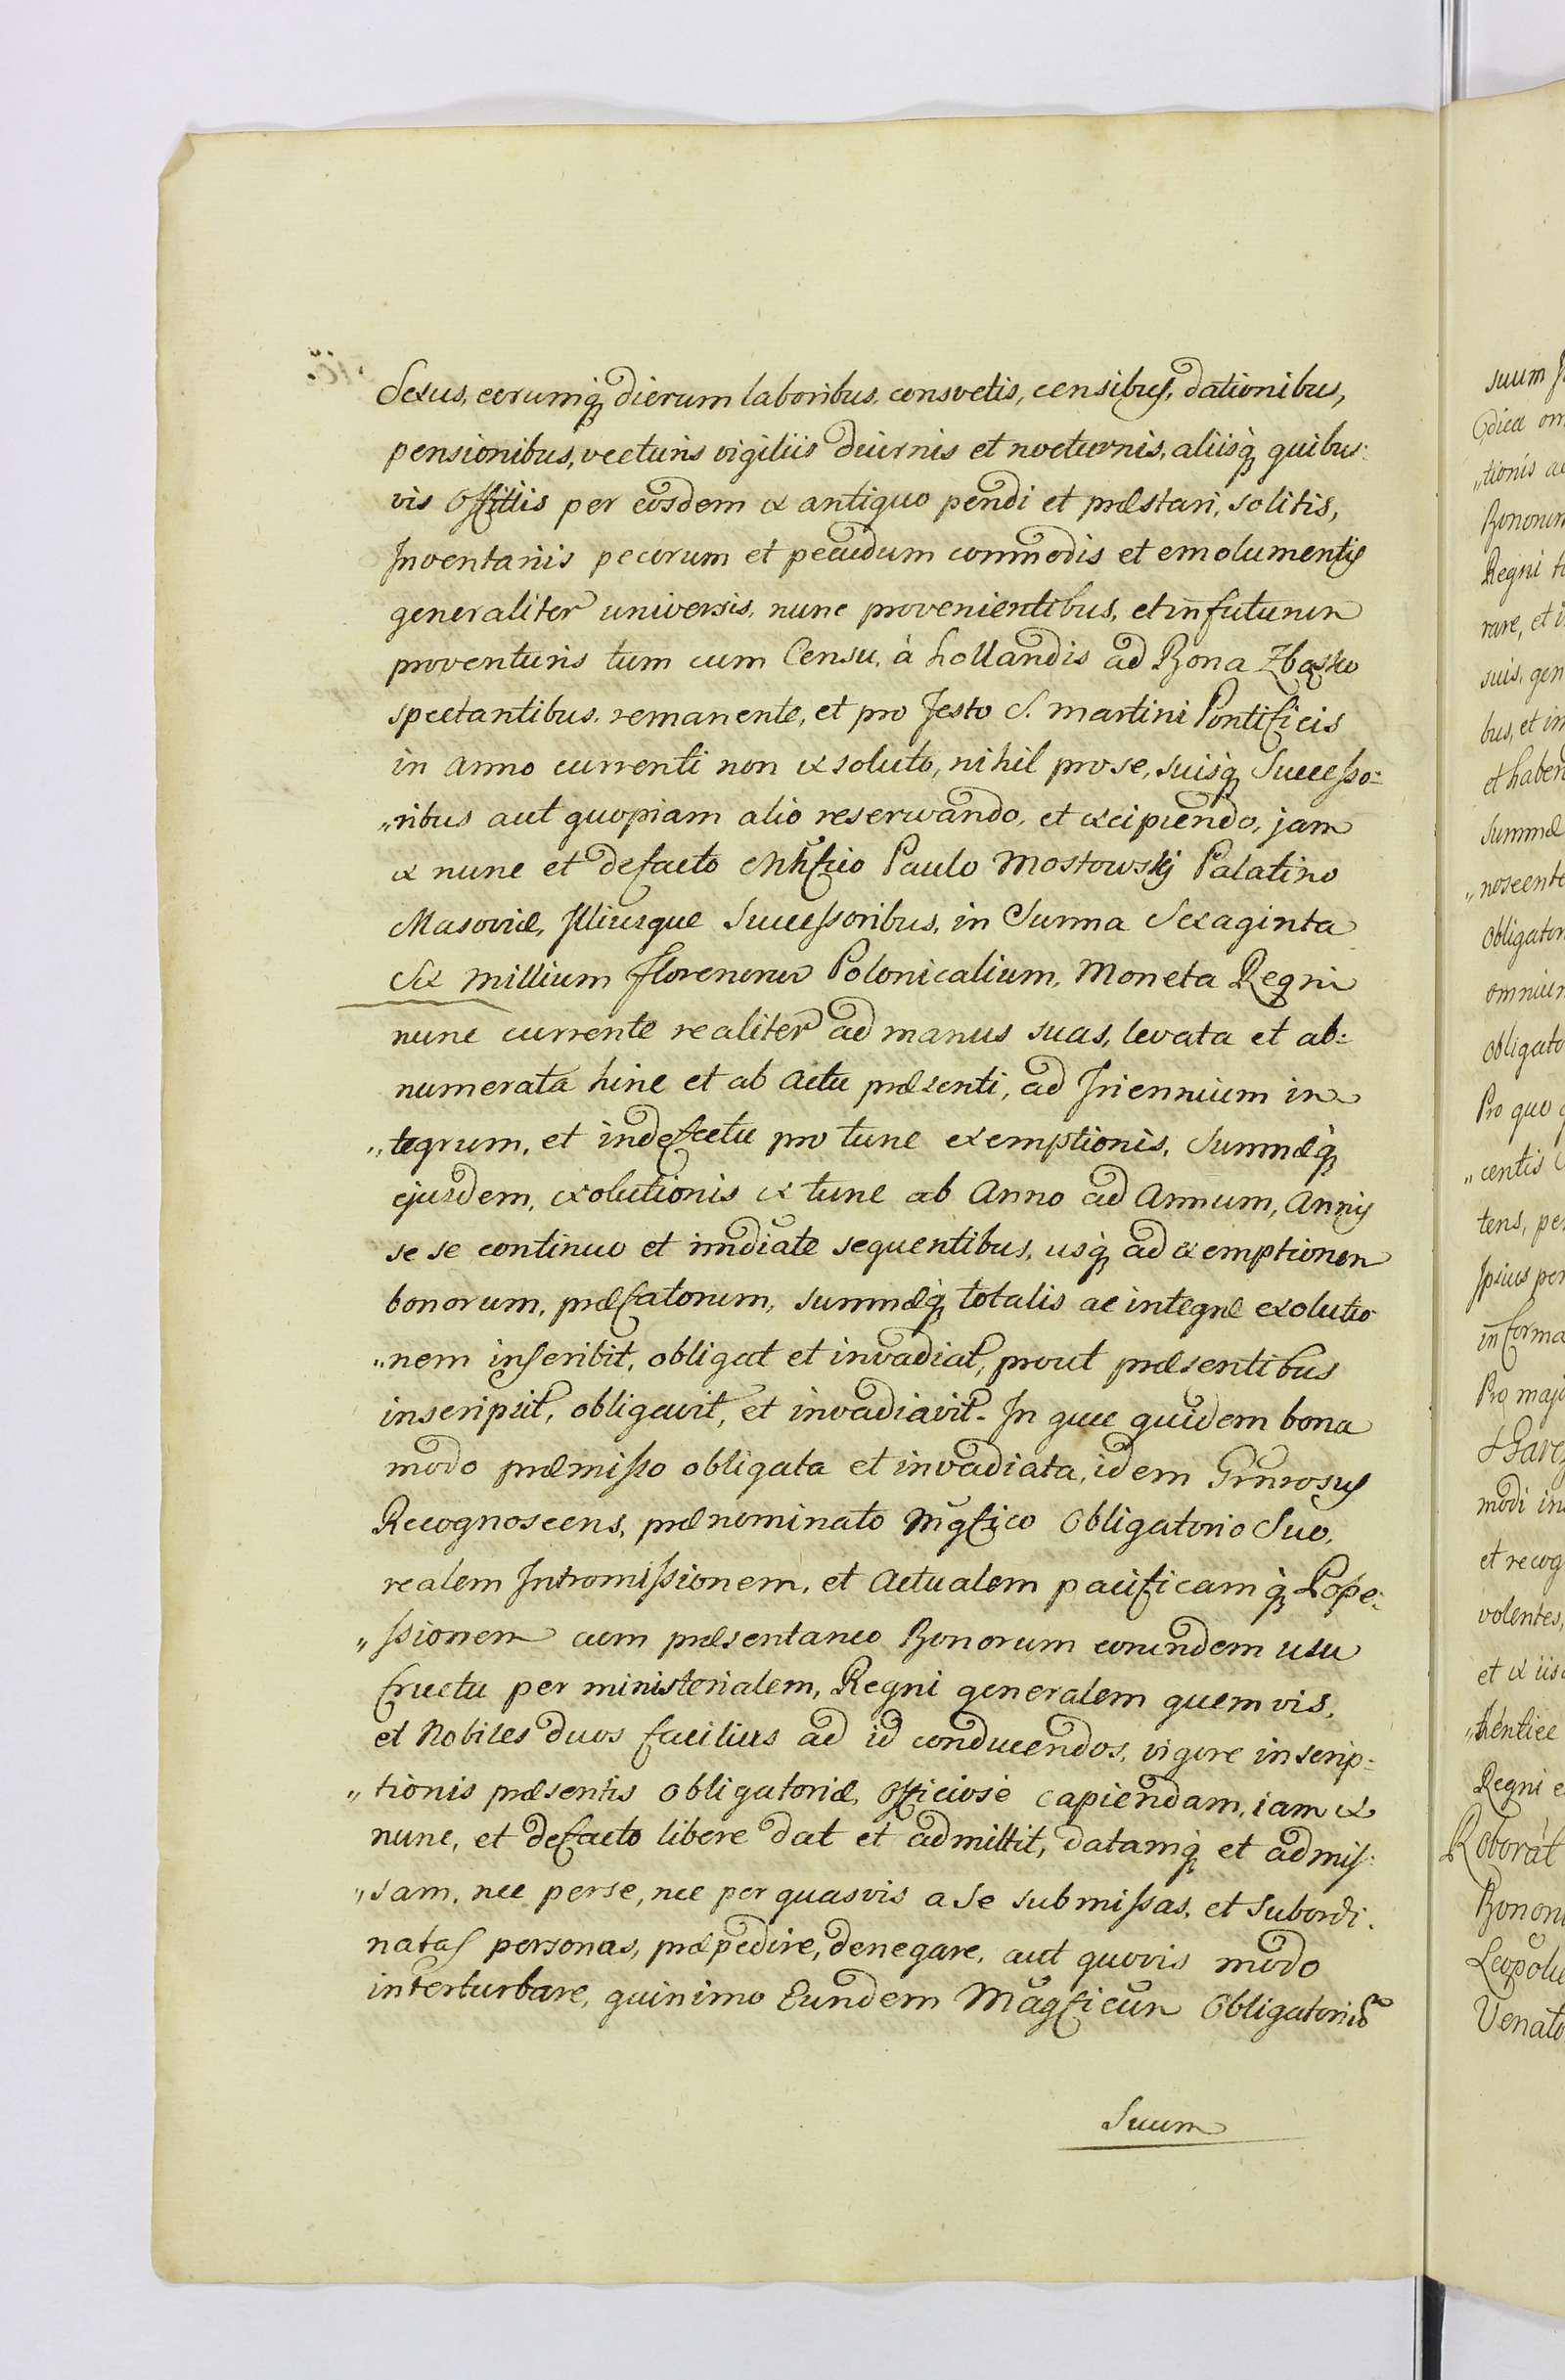 Sexus, eorumq́ dierum laboribus, consvetis, censibus, dationibus,
pensionibus, vecturis vigiliis diurnis et nocturnis, aliisq́ quibus:
vis Offitiis per eosdem ex antiquo pendi et præstari, solitis,
Inventariis pecorum et pecudum commodis et emolumentis
generaliter universis, nunc provenientibus, et in futurum
proventuris tum cum Censu, à hollandis ad Bona Zbąsko
spectantibus, remanente, et pro festo S. Martini Pontificis
in anno currenti non exsoluto, nihil pro se, suisq́ Successo:
„ribus aut quopiam alio reservando, et excipiendo, jam
ex nunc et defacto Paulo Mostowskj Palatino
Masoviæ, Illiusque Successoribus, in Sum̃a Sexaginta
Sex millium florenorum Polonicalium, Moneta Regni
nunc currente realiter ad manus suas, levata et ab:
numerata hinc et ab actu præsenti, ad Triennium in
„tegrum, et indefectu pro tunc exemptionis, Summæq́
ejusdem, exolutionis ex tunc ab Anno ad Annum, Annis
se se continuo et im̃diate sequentibus, usq́ ad exemptionem
bonorum, præfatorum, summæq́ totalis ac integræ exolutio
„nem inscribit, obligat et invadiat, prout præsentibus
inscripsit, obligavit, et invadiavit. In quæ quidem bona
modo præmisso obligata et invadiata, idem Gñrosus
Recognoscens, prænominato Mg̃fico Obligatorio Suo,
realem Intromissionem, et Actualem pacificamq́ Posse:
„ssionem cum præsentaneo Bonorum eorundem usu
fructu per ministerialem, Regni generalem quemvis,
et Nobiles duos facilius ad id conducendos, vigore inscrip:
„tionis præsentis obligatoriæ, officiosè capiendam, iam ex
nunc, et defacto libere dat et admittit, datamq́ et admis:
„sam, nec per se, nec per quasvis a se submissas, et Subordi:
natas personas, præpedire, denegare, aut quovis modo
interturbare, quinimo Eundem Magficum Obligatoriũ
Suum
suum
tionis
Regni
rare, et
suis, gen
bus, et im
et haben
summæ
„noscente
obligator
omnium
obligato
Pro quo
„centis
tens, per
Ipsius per
in forma
Pro majo
modi in
et recog
volentes,
et ex iis
Regni e
Roborat
Bonon
Venato